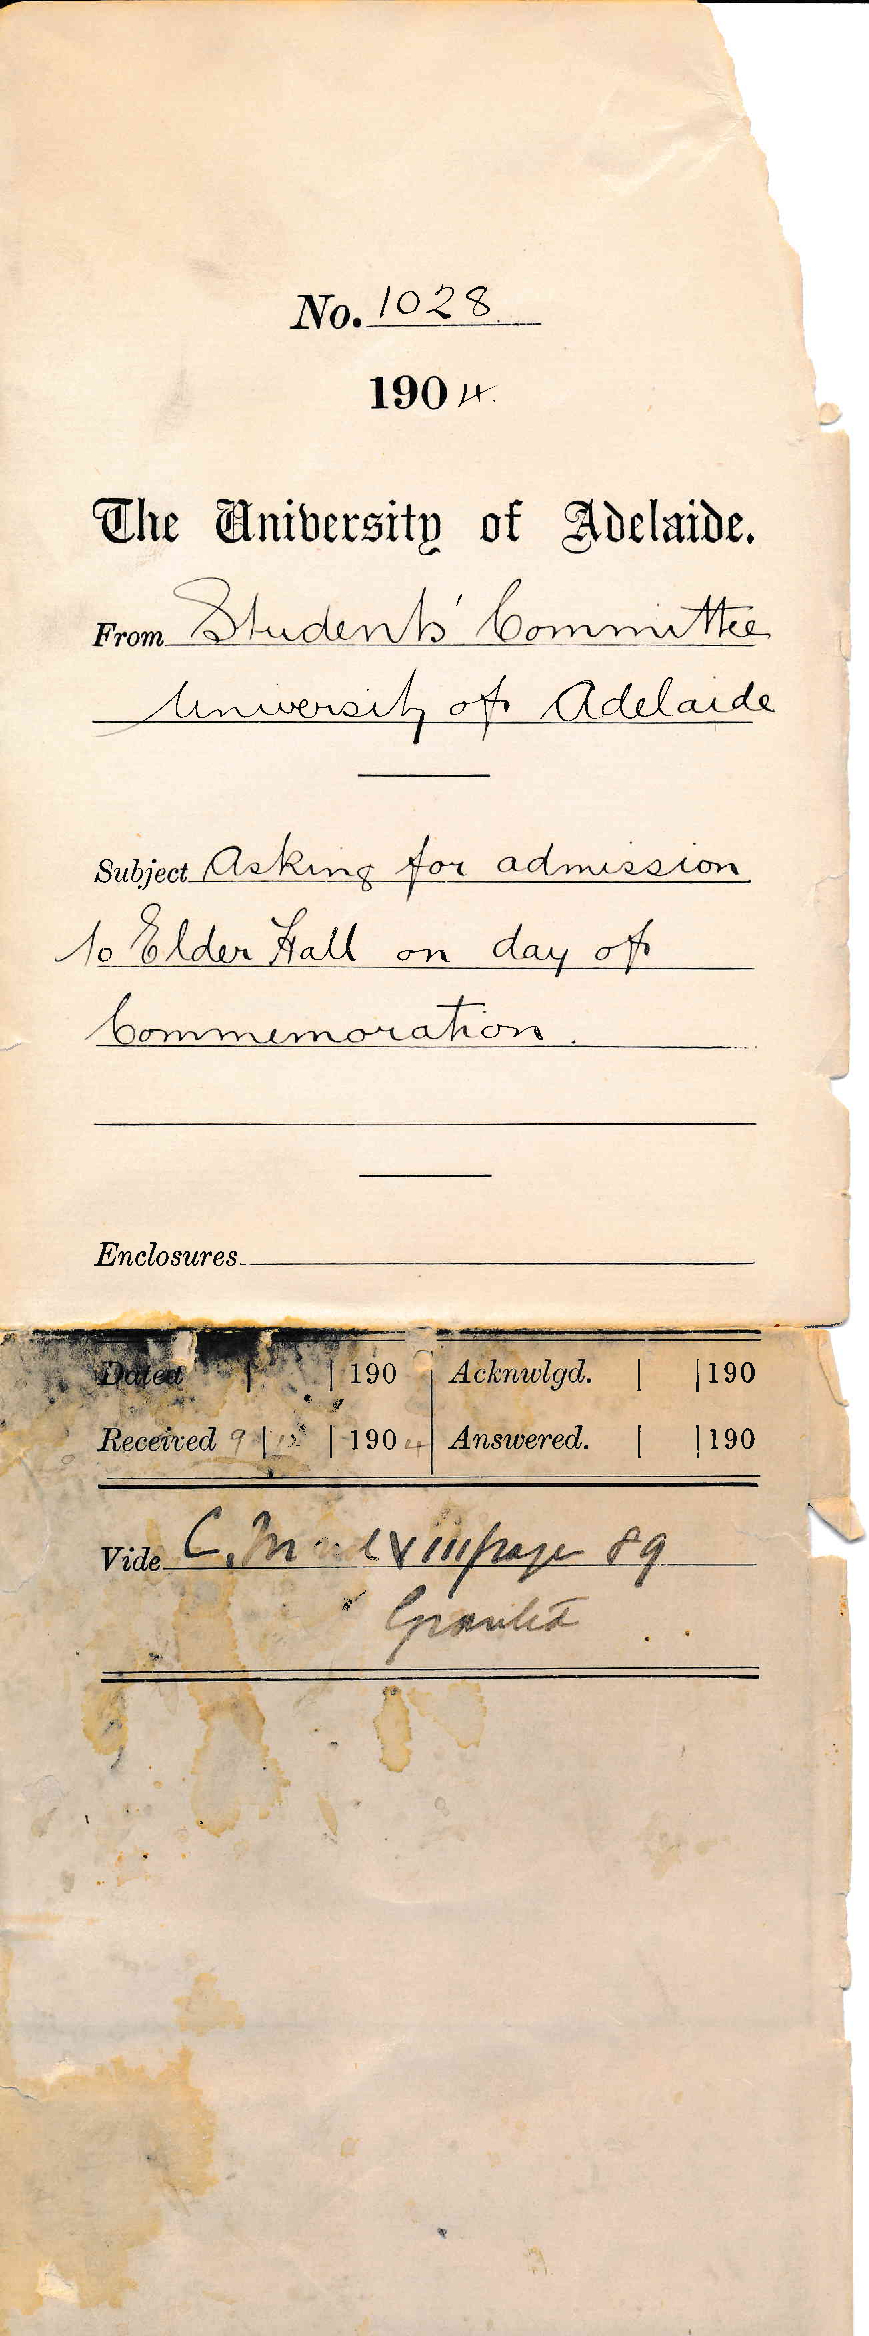 No. 1028
1904.
The University of Adelaide.
From Students' Committee
University of Adelaide
Subject Asking for admission
to Elder Hall on day of
Commemoration.
Enclosures
Dated | | 190 Acknwlgd. | | 190
Received 9 | 12 | 1904 Answered. | | 190
Vide C. M page 89
Granted